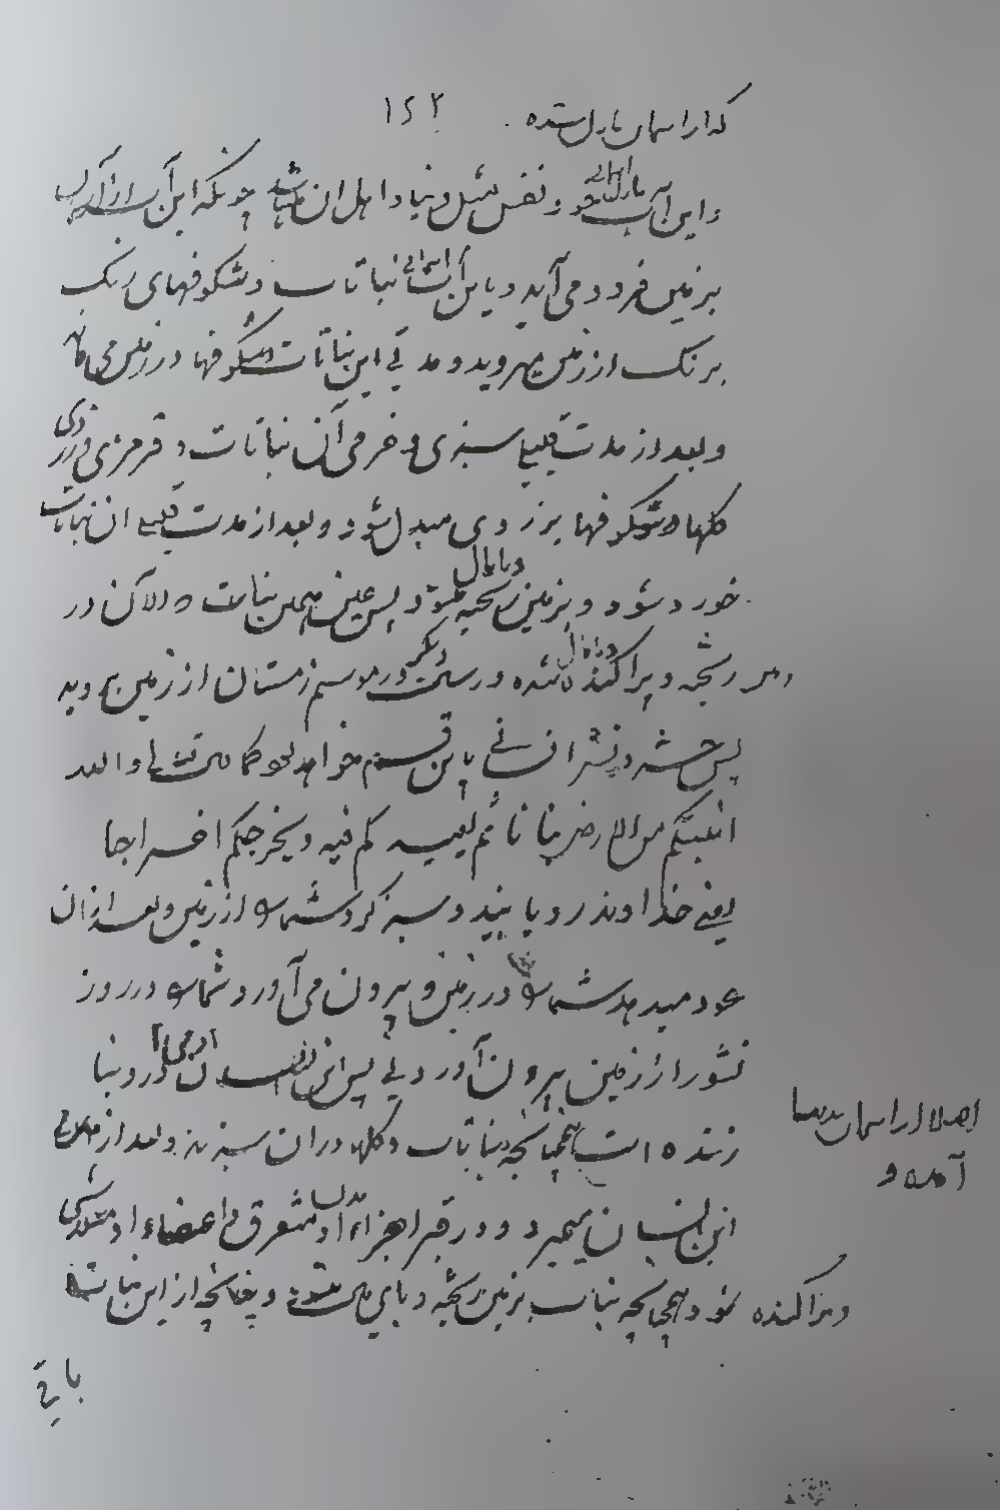 که از اسمان نازل شده ۱۶۲
و این آب نازل در نفس مثل دنیا و اهل ان چونکه این آب از آسمان
بر زمین فرود می آید و باین آب آسمانی نباتات و شکوفهای رنک
برنک از زمین میروید و مدتی این نباتات شکوفها در زمین می ماند
و بعد از مدت قلیلی سبزی و خرمی آن نباتات و قرمزی و زردی
کلها و شکوفها بزردی مبدل شود و بعد از مدت قلیلی ان نباتات
خورد شود و بر زمین ریخته و پامال شود پس عین همین نبات در
ریخته و پراکنده و پامال شده در سال دیگر در موسم زمستان از زمین بروید
پس حشر و نشر انسانی باین قسم خواهد بود کما قال تعالی و الله
انبتکم من الارض نباتا ثم یعیدکم فیه و یخرجکم اخراجا
یعنی خداوند رویانید و سبز کرد شما را از زمین و بعد از ان
عود میدهد شما را در زمین و بیرون می آورد شما را در روز
نشور از زمین بیرون آوردنی پس این انسان آدمی در دنیا
زنده است همچنانچه نباتات و کلها دران سبزند و بعد از مدتی
این انسان بمیرد و در قبر اجزاء بدن او متفرق و اعضاء او متلاشی
و پراکنده شود همچنانچه نبات بر زمین ریخته و پایمال شود و چنانچه از این نباتات
اصلا از اسمان
آمده و
باقی